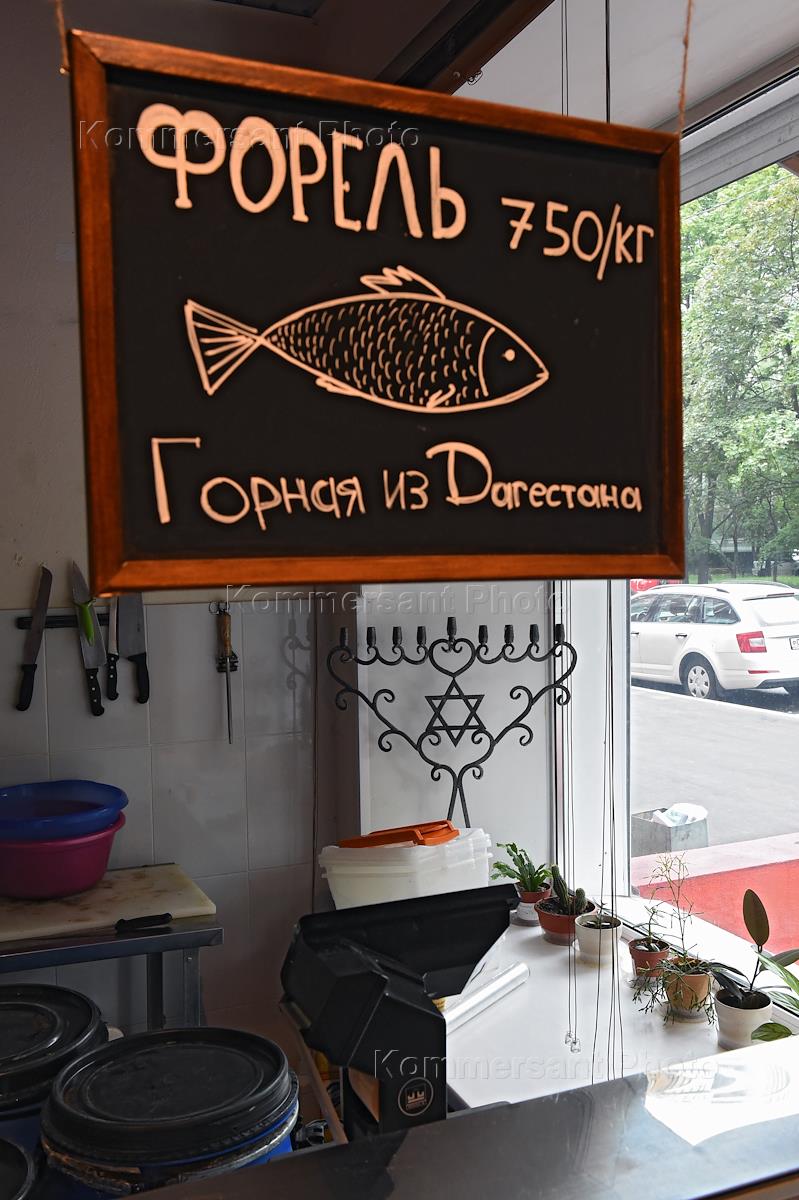 Kommersant Photo
ФОРЕЛЬ 750/КГ
Горная из Дагестана
Kommersant Photo
Kommersant Photo